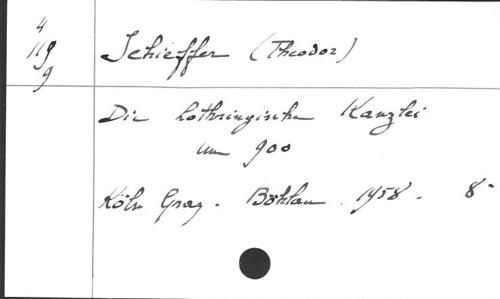 4
119
9
Schieffer (Theodor)
Die lothringische Kanzlei
um 900
Köln Graz - Böhlau . 1958 . 8°